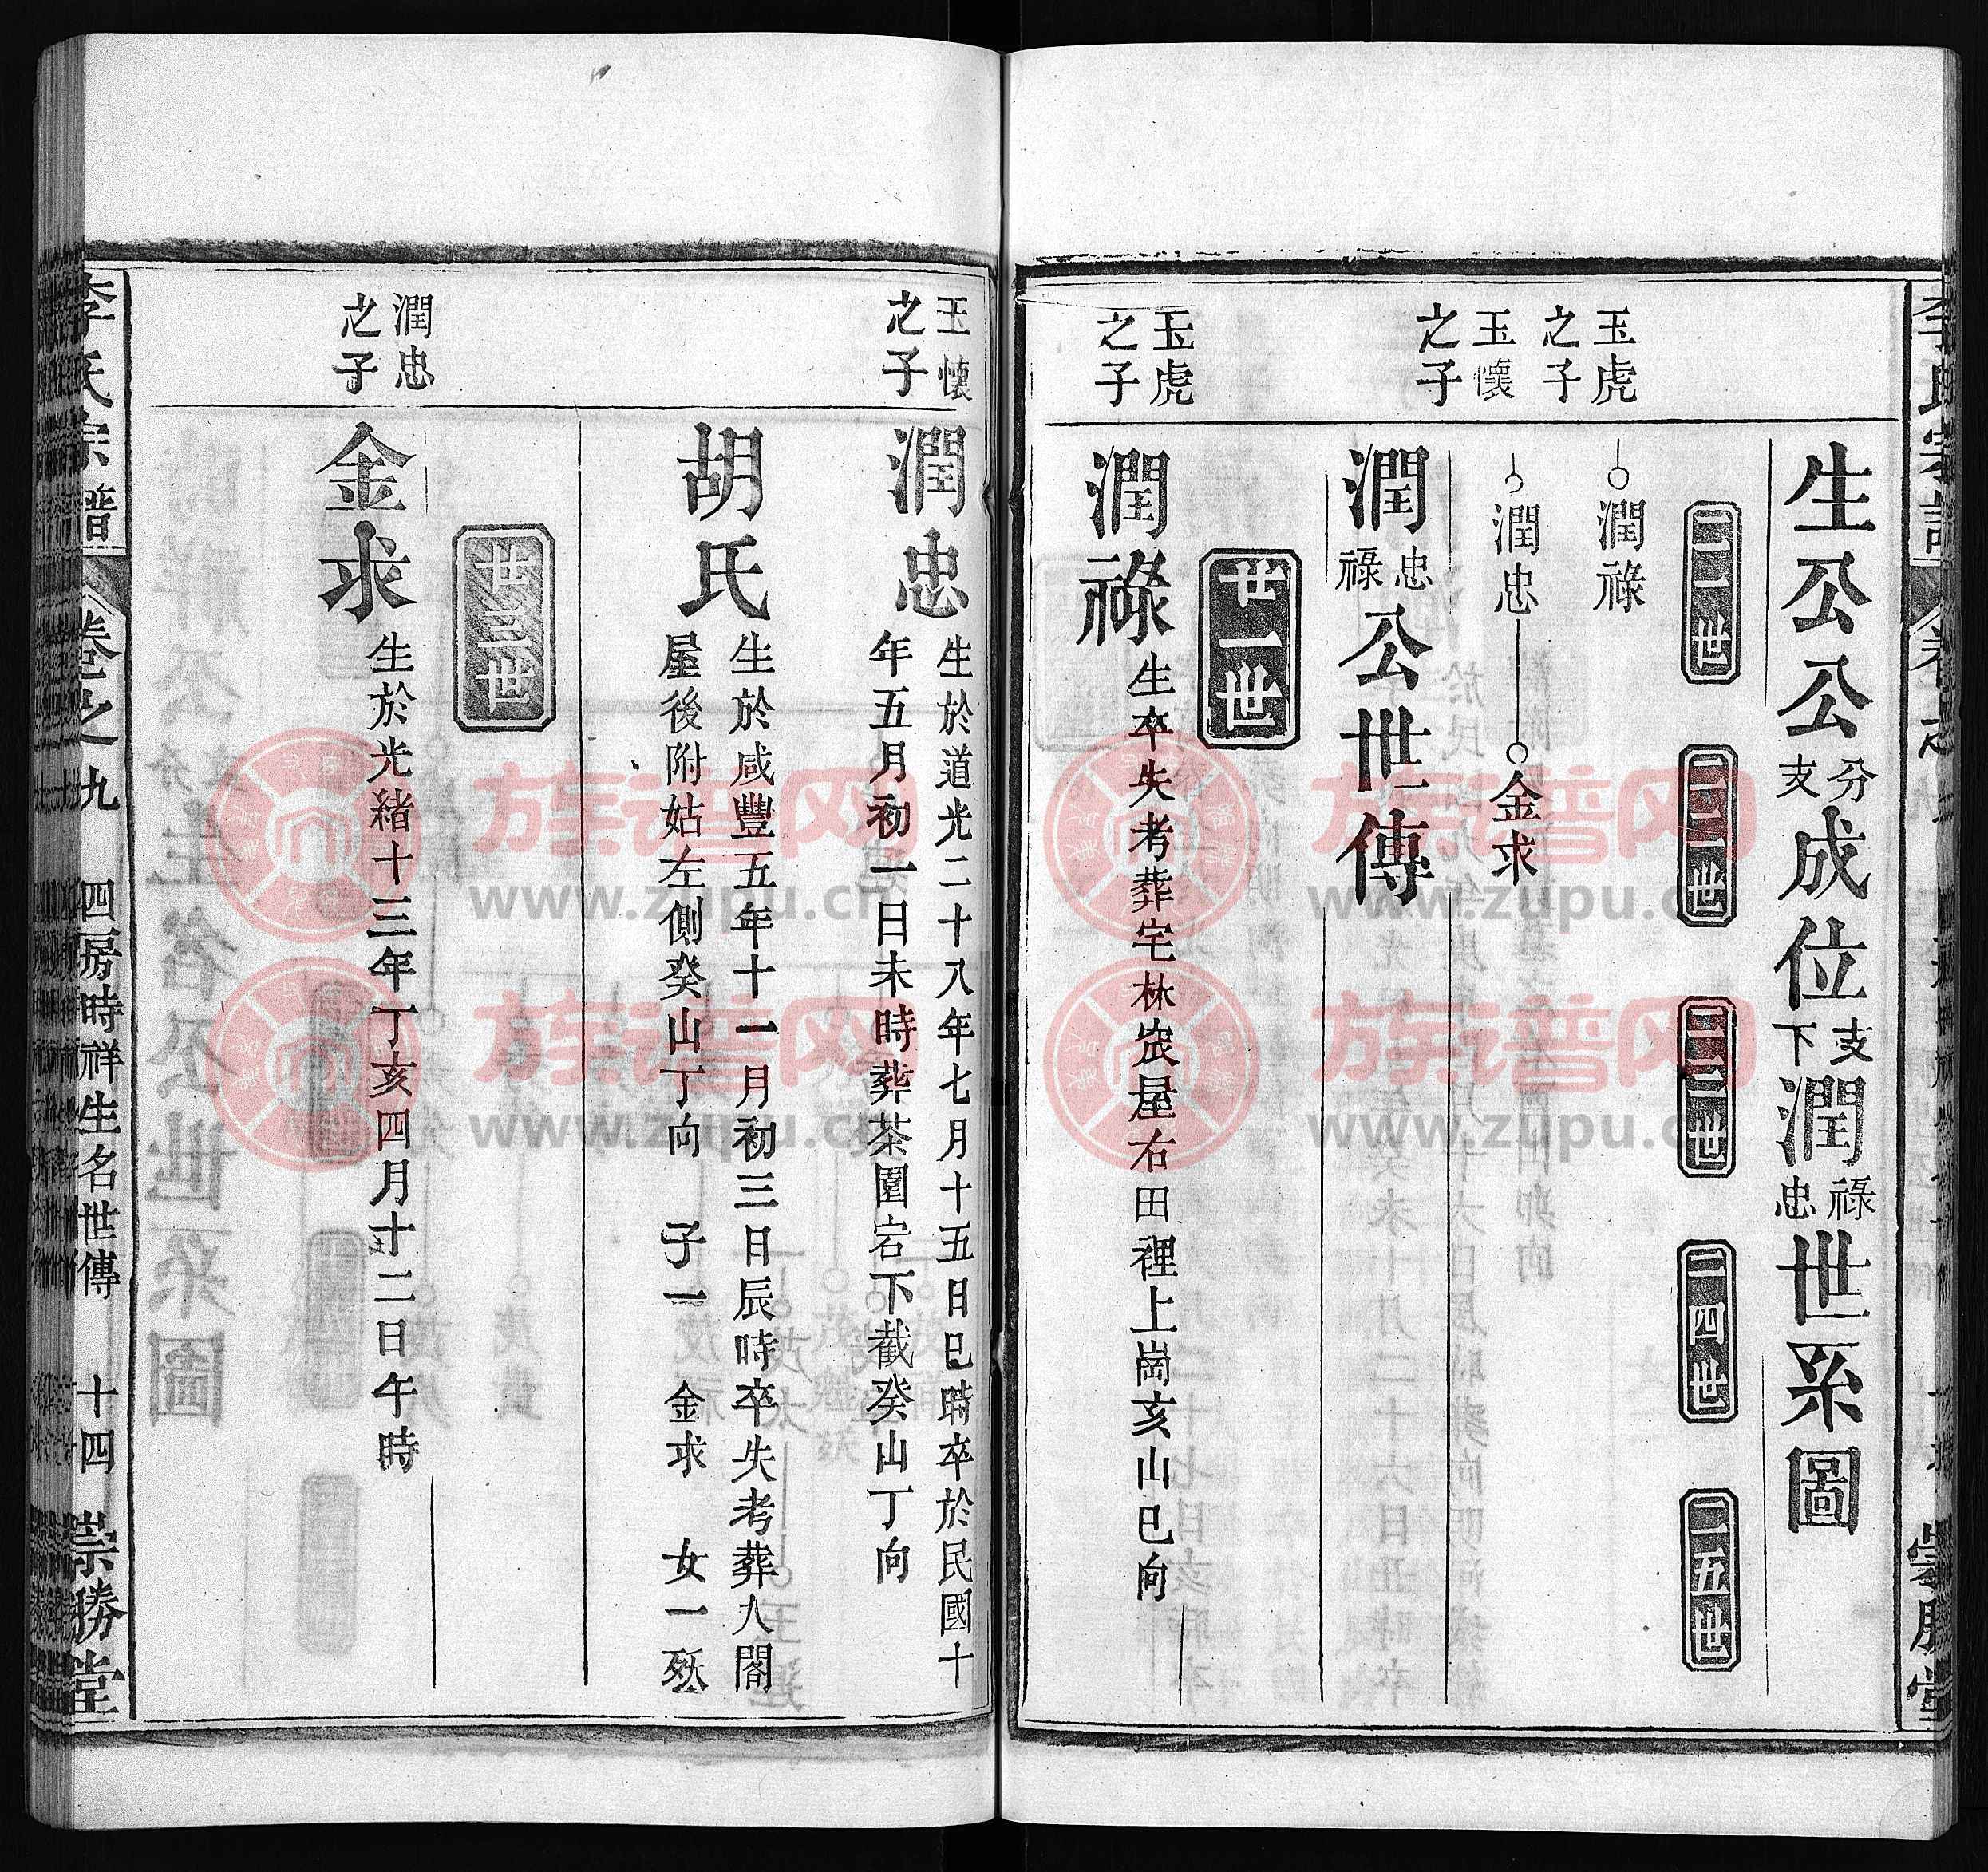 生公公分支成位支下潤祿忠世系圖
二一世
二二世
二三世
二四世
二五世
玉虎之子
潤祿
玉懷之子
潤忠
金求
潤忠祿公世傳
廿一世
玉虎之子
潤祿
生卒失考葬宅林㟁屋右田裡上崗亥山巳向
玉懷之子
潤忠
生於道光二十八年七月十五日巳時卒於民國十
年五月初一日未時葬茶園宕下截癸山丁向
胡氏
生於咸豐五年十一月初三日辰時卒失考葬人閣
屋後附姑左側癸山丁向 子一 金求 女一殀
廿三世
潤忠之子
金求
生於光緒十三年丁亥四月十二日午時
李氏宗譜 卷之九 四房時祥生名世傳 十四 崇勝堂
族谱网
www.zupu.cn
族谱网
www.zupu.cn
族谱网
www.zupu.cn
族谱网
www.zupu.cn